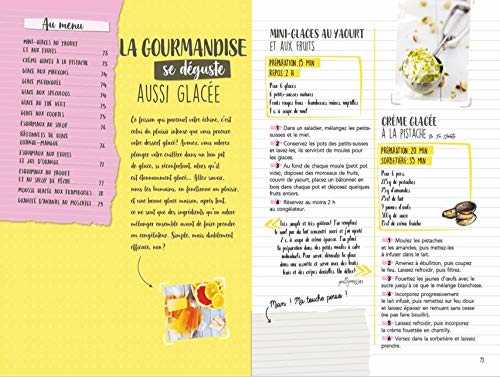 Au menu
MINI-GLACES AU YAOURT
ET AUX FRUITS 73
CRÈME GLACÉE À LA PISTACHE 73
GLACE AUX MARRONS 74
GLACE
GLACE AUX SPECULOOS
GLACE AU THÉ VERT
GLACE AUX COOKIES
ESQUIMAUX AU SKYR
BÂTONNETS DE GLACE
MANGUE
ESQUIMAUX AUX FRUITS
ET
ESQUIMAUX AU YAOURT
ET AU SIROP DE PÊCHE
MOUSSE GLACÉE AUX FRAMBOISES
GRANITÉ D'ANANAS AU MOSCATEL
LA GOURMANDISE
se déguste
AUSSI GLACÉE
Le frisson qui parcourt votre échine, c'est
celui du plaisir intense que vous procure
votre dessert glacé! Avouez, vous adorez
plonger votre cuillère dans un bon pot
de glace, si réconfortant, alors qu'il
est étonnamment glacé... Allez savoir,
nous les humains, on fonctionne au plaisir,
et une bonne glace maison, après tout,
ce ne sont que des ingrédients qu'on adore
mélanger ensemble avant de faire prendre
au congélateur. Simple, mais diablement
efficace, non?
MINI-GLACES AU YAOURT
ET AUX FRUITS
PRÉPARATION: 15 MIN
REPOS: 2 H
Pour 6 glaces
6 petits-suisses nature
Fruits rouges frais: framboises, mûres, myrtilles
1 c. à soupe de miel
1 Dans un saladier, mélangez les petits-
suisses et le miel.
2 Conservez les pots des petits-suisses
et lavez-les, ils serviront de moules pour
les glaces.
3 Au fond de chaque moule (petit pot
vide), disposez des morceaux de fruits,
recouvrez de yaourt, placez un bâtonnet en
bois dans chaque pot et déposez quelques
fruits entiers.
4 Réservez au moins 2 h
au congélateur.
Très simple et très goûteux! J'ai remplacé le
miel par du lait concentré sucré et j'en ai ajouté
2 c. à soupe de crème épaisse. J'ai placé
la préparation dans des petits moules à cake
individuels. Pour servir, démoulez la glace
dans une assiette et servez avec des fruits
frais et des crêpes dentelles. Un délice!
Miam! Ma touche perso!
CRÈME GLACÉE
À LA PISTACHE
PRÉPARATION: 20 MIN
SORBETIÈRE: 35 MIN
Pour 6 pers.
125 g de pistaches
25 g d'amandes
75 cl de lait
9 jaunes d'œufs
300 g de sucre
25 cl de crème fraîche
1 Moulez les pistaches
et les amandes, puis mettez-les
à infuser dans le lait.
2 Amenez à ébullition, puis coupez
le feu. Laissez refroidir, puis filtrez.
3 Fouettez les jaunes d'œufs avec le
sucre jusqu'à ce que le mélange blanchisse.
4 Incorporez progressivement
le lait infusé, puis remettez sur feu doux
et laissez épaissir en remuant sans cesse
(ne pas faire bouillir).
5 Laissez refroidir, puis incorporez
la crème fouettée en chantilly.
6 Versez dans la sorbetière et laissez
prendre.
73